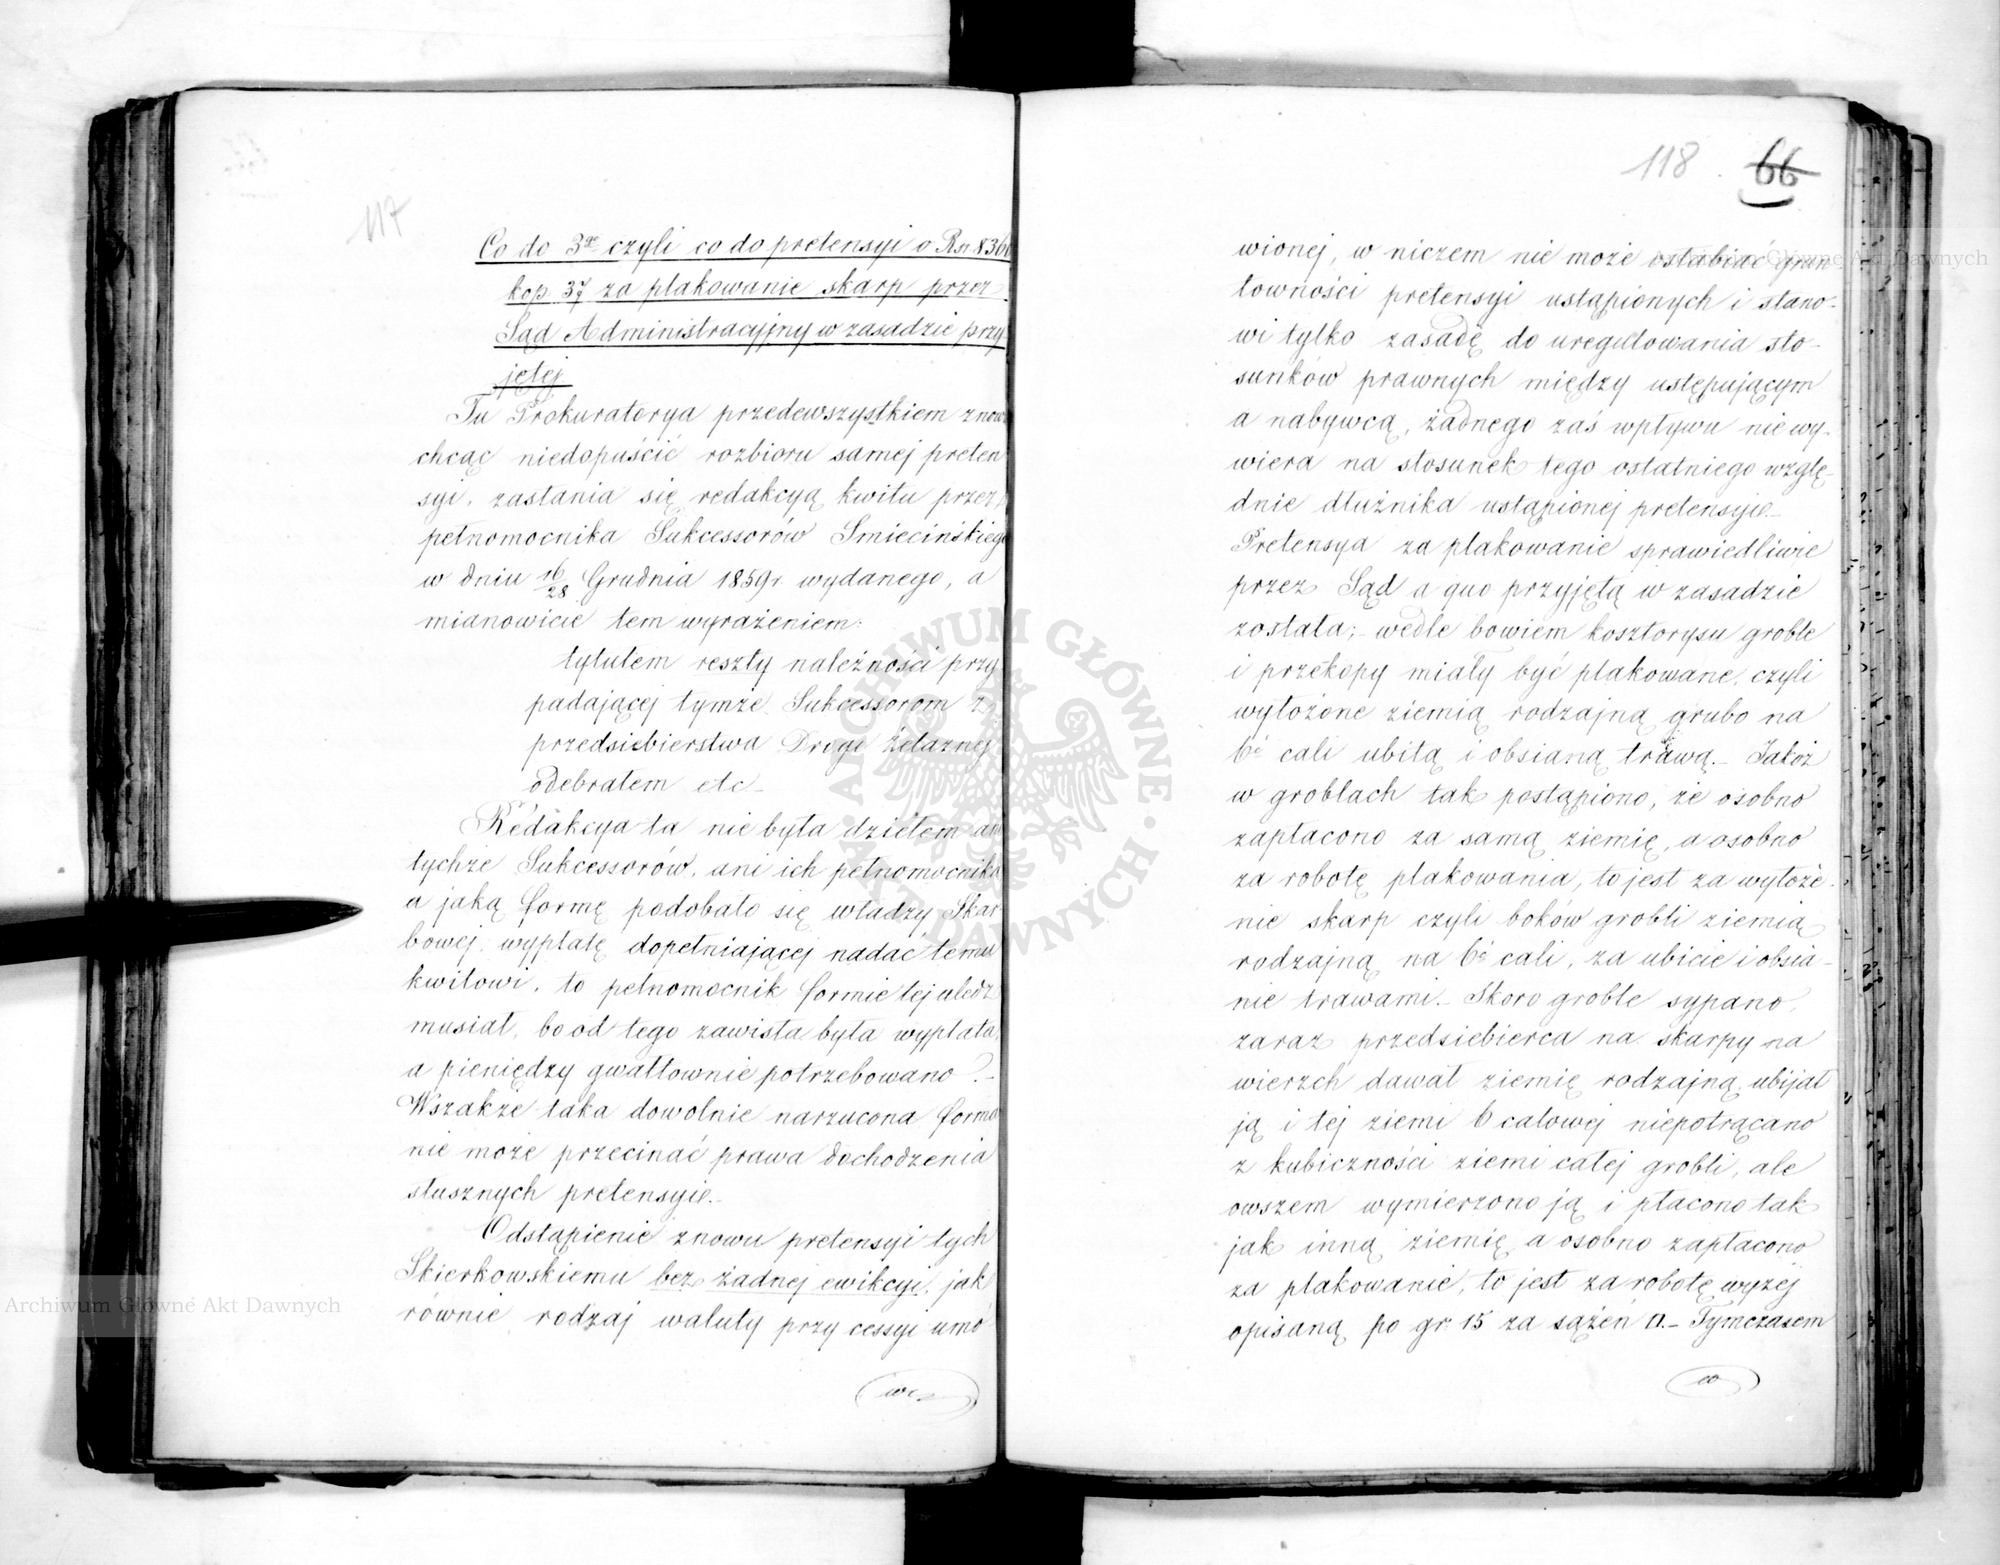 117
Co do 3go czyli co do pretensyi o Rsr 836
kop. 37 za plakowanie skarp przez
Sąd Administracyjny w zasadzie przy-
jętej
Tu Prokuratorya przedewszystkiem znow
chcąc niedopuścić rozbioru samej preten
syi, zasłania się redakcyą kwitu przez
pełnomocnika Sukcessorów Smiecińskiego
w dniu 16/28 Grudnia 1859 r. wydanego, a
mianowicie tem wyrażeniem:
tytułem reszty należności przy
padającej tymże Sukcessorom z
przedsiebierstwa Drogi Żelaznej
odebrałem etc_
Redakcya ta nie była dziełem ani
tychże Sukcessorów, ani ich pełnomocnika
a jaką formę podobało się władzy Skar-
bowej wypłatę dopełniającej nadać temu
kwitowi, to pełnomocnik formie tej uledz
musiał, bo od tego zawisła była wypłata,
a pieniędzy gwałtownie potrzebowano?_
Wszakże taka dowolnie narzucona forma
nie może przecinać prawa dochodzenia
słusznych pretensyi._
Odstąpienie znowu pretensyi tych
Skierkowskiemu bez żadnej ewikcyi, jak
równie rodzaj waluty przy cessyi umó
118 66
wionej, w niczem nie może osłabiać grun-
towności pretensyi ustąpionych i stano-
wi tylko zasadę do uregulowania sto-
sunków prawnych między ustępującym
a nabywcą, żadnego zaś wpływu nie wy-
wiera na stosunek tego ostatniego wzglę-
dnie dłużnika ustąpionej pretensyi._
Pretensya za plakowanie sprawiedliwie
przez Sąd a quo przyjętą w zasadzie
została; wedle bowiem kosztorysu groble
i przekopy miały być plakowane, czyli
wyłożone ziemią rodzajną grubo na
6ć cali ubitą i obsianą trawą._ Jakoż
w groblach tak postąpiono, że osobno
zapłacono za samą ziemię, a osobno
za robotę plakowania, to jest za wyłoże-
nie skarp czyli boków grobli ziemią
rodzajną na 6ć cali, za ubicie i obsia-
nie trawami._ Skoro groble sypano,
zaraz przedsiebierca na skarpy na
wierzch dawał ziemię rodzajną, ubijał
ją i tej ziemi 6 calowej niepotrącano
z kubiczności ziemi całej grobli, ale
owszem wymierzono ją i płacono tak
jak inną ziemię, a osobno zapłacono
za plakowanie, to jest za robotę wyżej
opisaną po gr. 15 za sążeń □._ Tymczasem
co
ARCHIWUM GŁÓWNE AKT DAWNYCH
Archiwum Główne Akt Dawnych
Archiwum Główne Akt Dawnych